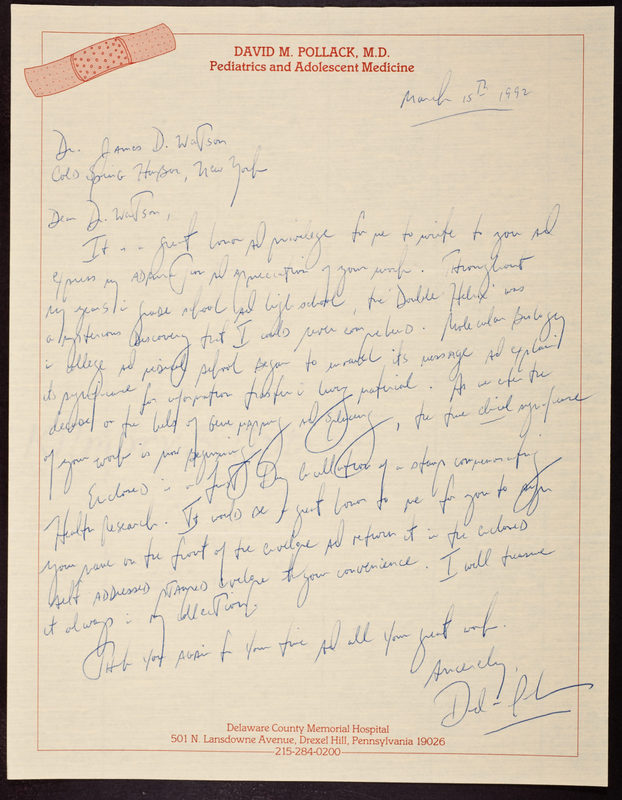 DAVID M. POLLACK, M.D.
Pediatrics and Adolescent Medicine
March 15th 1992
Dr. James D. Watson
Cold Spring Harbor, New York
Dear Dr. Watson,
It is a great honor and privilege for me to write to you and
express my admiration and appreciation of your work. Throughout
my years in grade school and high school, the "Double Helix" was
a mysterious discovery that I could never comprehend. Molecular Biology
in college and medical school began to unravel its message and explain
its significance for information transfer in living material. As we enter the
decade on the help of Gene mapping and splicing, the true clinical significance
of your work is now beginning.
Enclosed is a First Day Cancellation of a stamp commemorating
Health Research. It would be a great honor to me for you to sign
your name on the front of the envelope and return it in the enclosed
self addressed stamped envelope at your convenience. I will treasure
it always in my collection.
Thank you again for your time and all your great work.
Sincerely,
Delaware County Memorial Hospital
501 N. Lansdowne Avenue, Drexel Hill, Pennsylvania 19026
215-284-0200